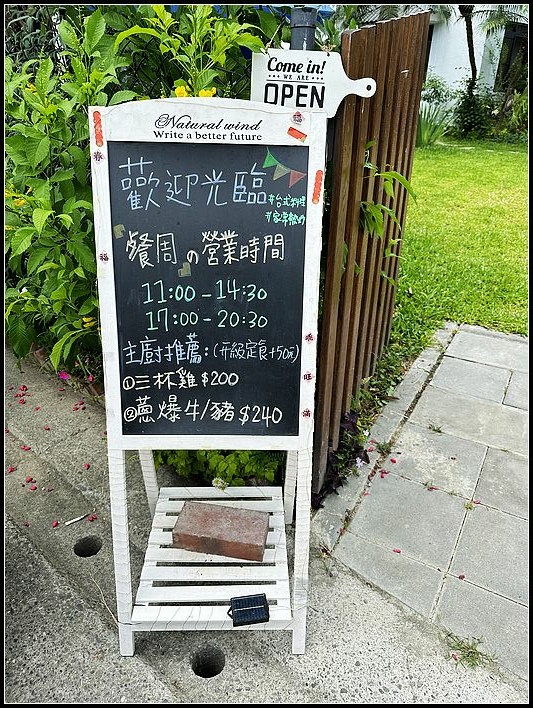 Come in!
WE ARE
OPEN
Natural wind
Write a better future
春
福
歡迎光臨
#台式料理
餐周の營業時間
11:00-14:30
17:00-20:30
主廚推薦:(升級定食+50元)
①三杯雞$200
②蔥爆牛/豬$240
旺
滿